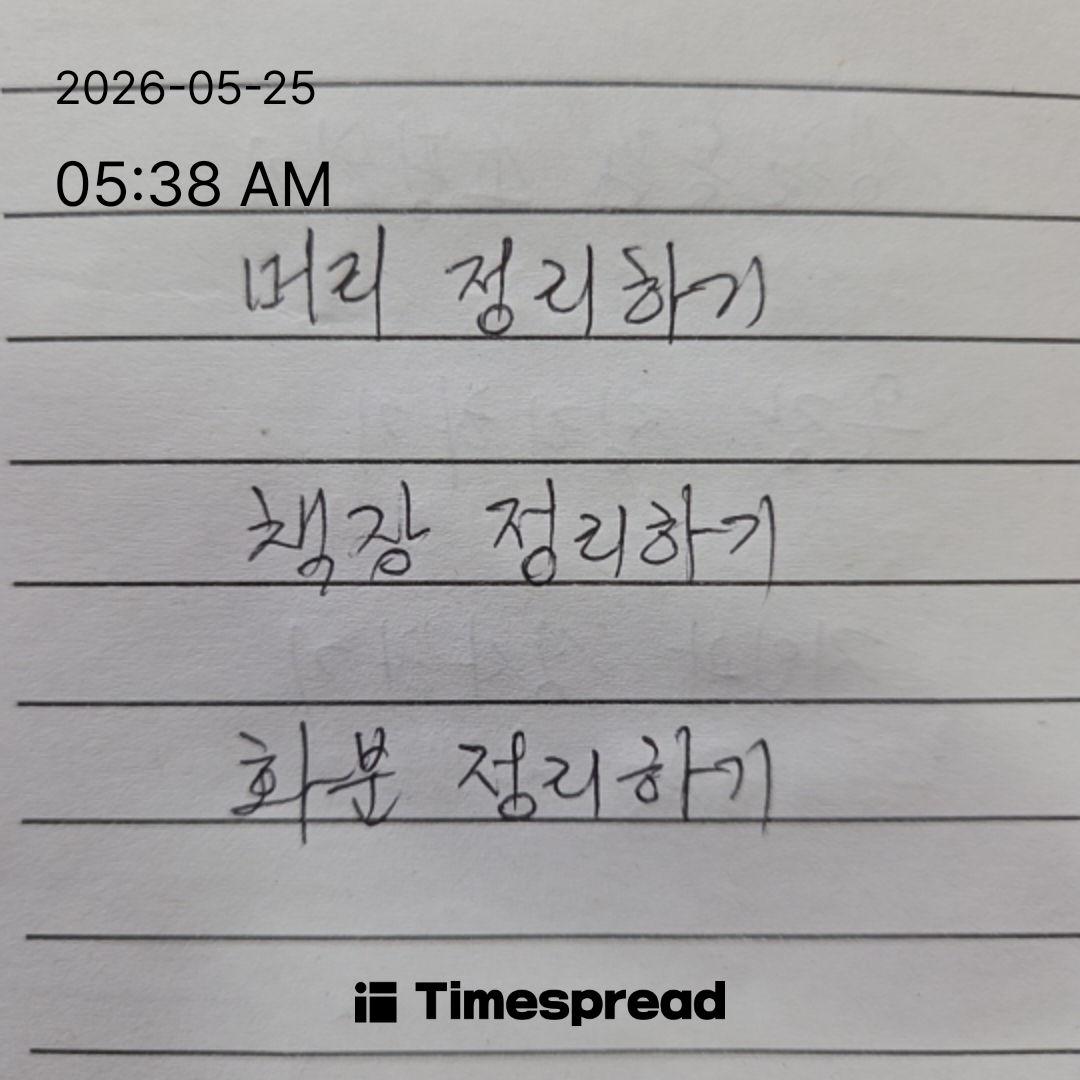 2026-05-25
05:38 AM
머리 정리하기
책장 정리하기
화분 정리하기
Timespread